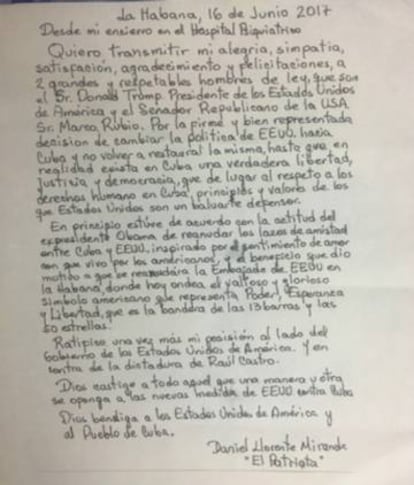 La Habana, 16 de Junio 2017
Desde mi encierro en el Hospital Psiquiatrico
Quiero transmitir mi alegria, simpatia,
satisfacion, agradecimiento y felicitaciones, a
2 grandes y respetables hombres de ley, que son
el Sr. Donald Tromp. Presidente de los Estados Unidos
de América y el Senador Republicano de la USA.
Sr. Marco Rubio. Por la firme y bien representada
decision de cambiar la politica de EEUU. hacia
Cuba y no volver a restaurar la misma, hasta que en
realidad exista en Cuba una verdadera libertad,
justicia y democracia, que de lugar al respeto a los
derechos humano en Cuba, principios y valores de los
que Estados Unidos son un baluarte defensor.
En principio estuve de acuerdo con la actitud del
expresidente Obama de reanudar los lazos de amistad
entre Cuba y EEUU, inspirado por el sentimiento de amor
con que vivo por los americanos, y el beneficio que dio
motivo a que se reanudara la Embajada de EEUU en
la Habana, donde hoy ondea el valioso y glorioso
simbolo americano que representa Poder, Esperanza
y Libertad, que es la bandera de las 13 barras y las
50 estrellas.
Ratifico una vez más mi posición al lado del
Gobierno de los Estados Unidos de América. Y en
contra de la dictadura de Raúl Castro.
Dios castigue a todo aquel que una manera y otra
se oponga a las nuevas medidas de EEUU contra Cuba
Dios bendiga a los Estados Unidos de América y
al Pueblo de Cuba.
Daniel Llorente Miranda
"El Patriota"